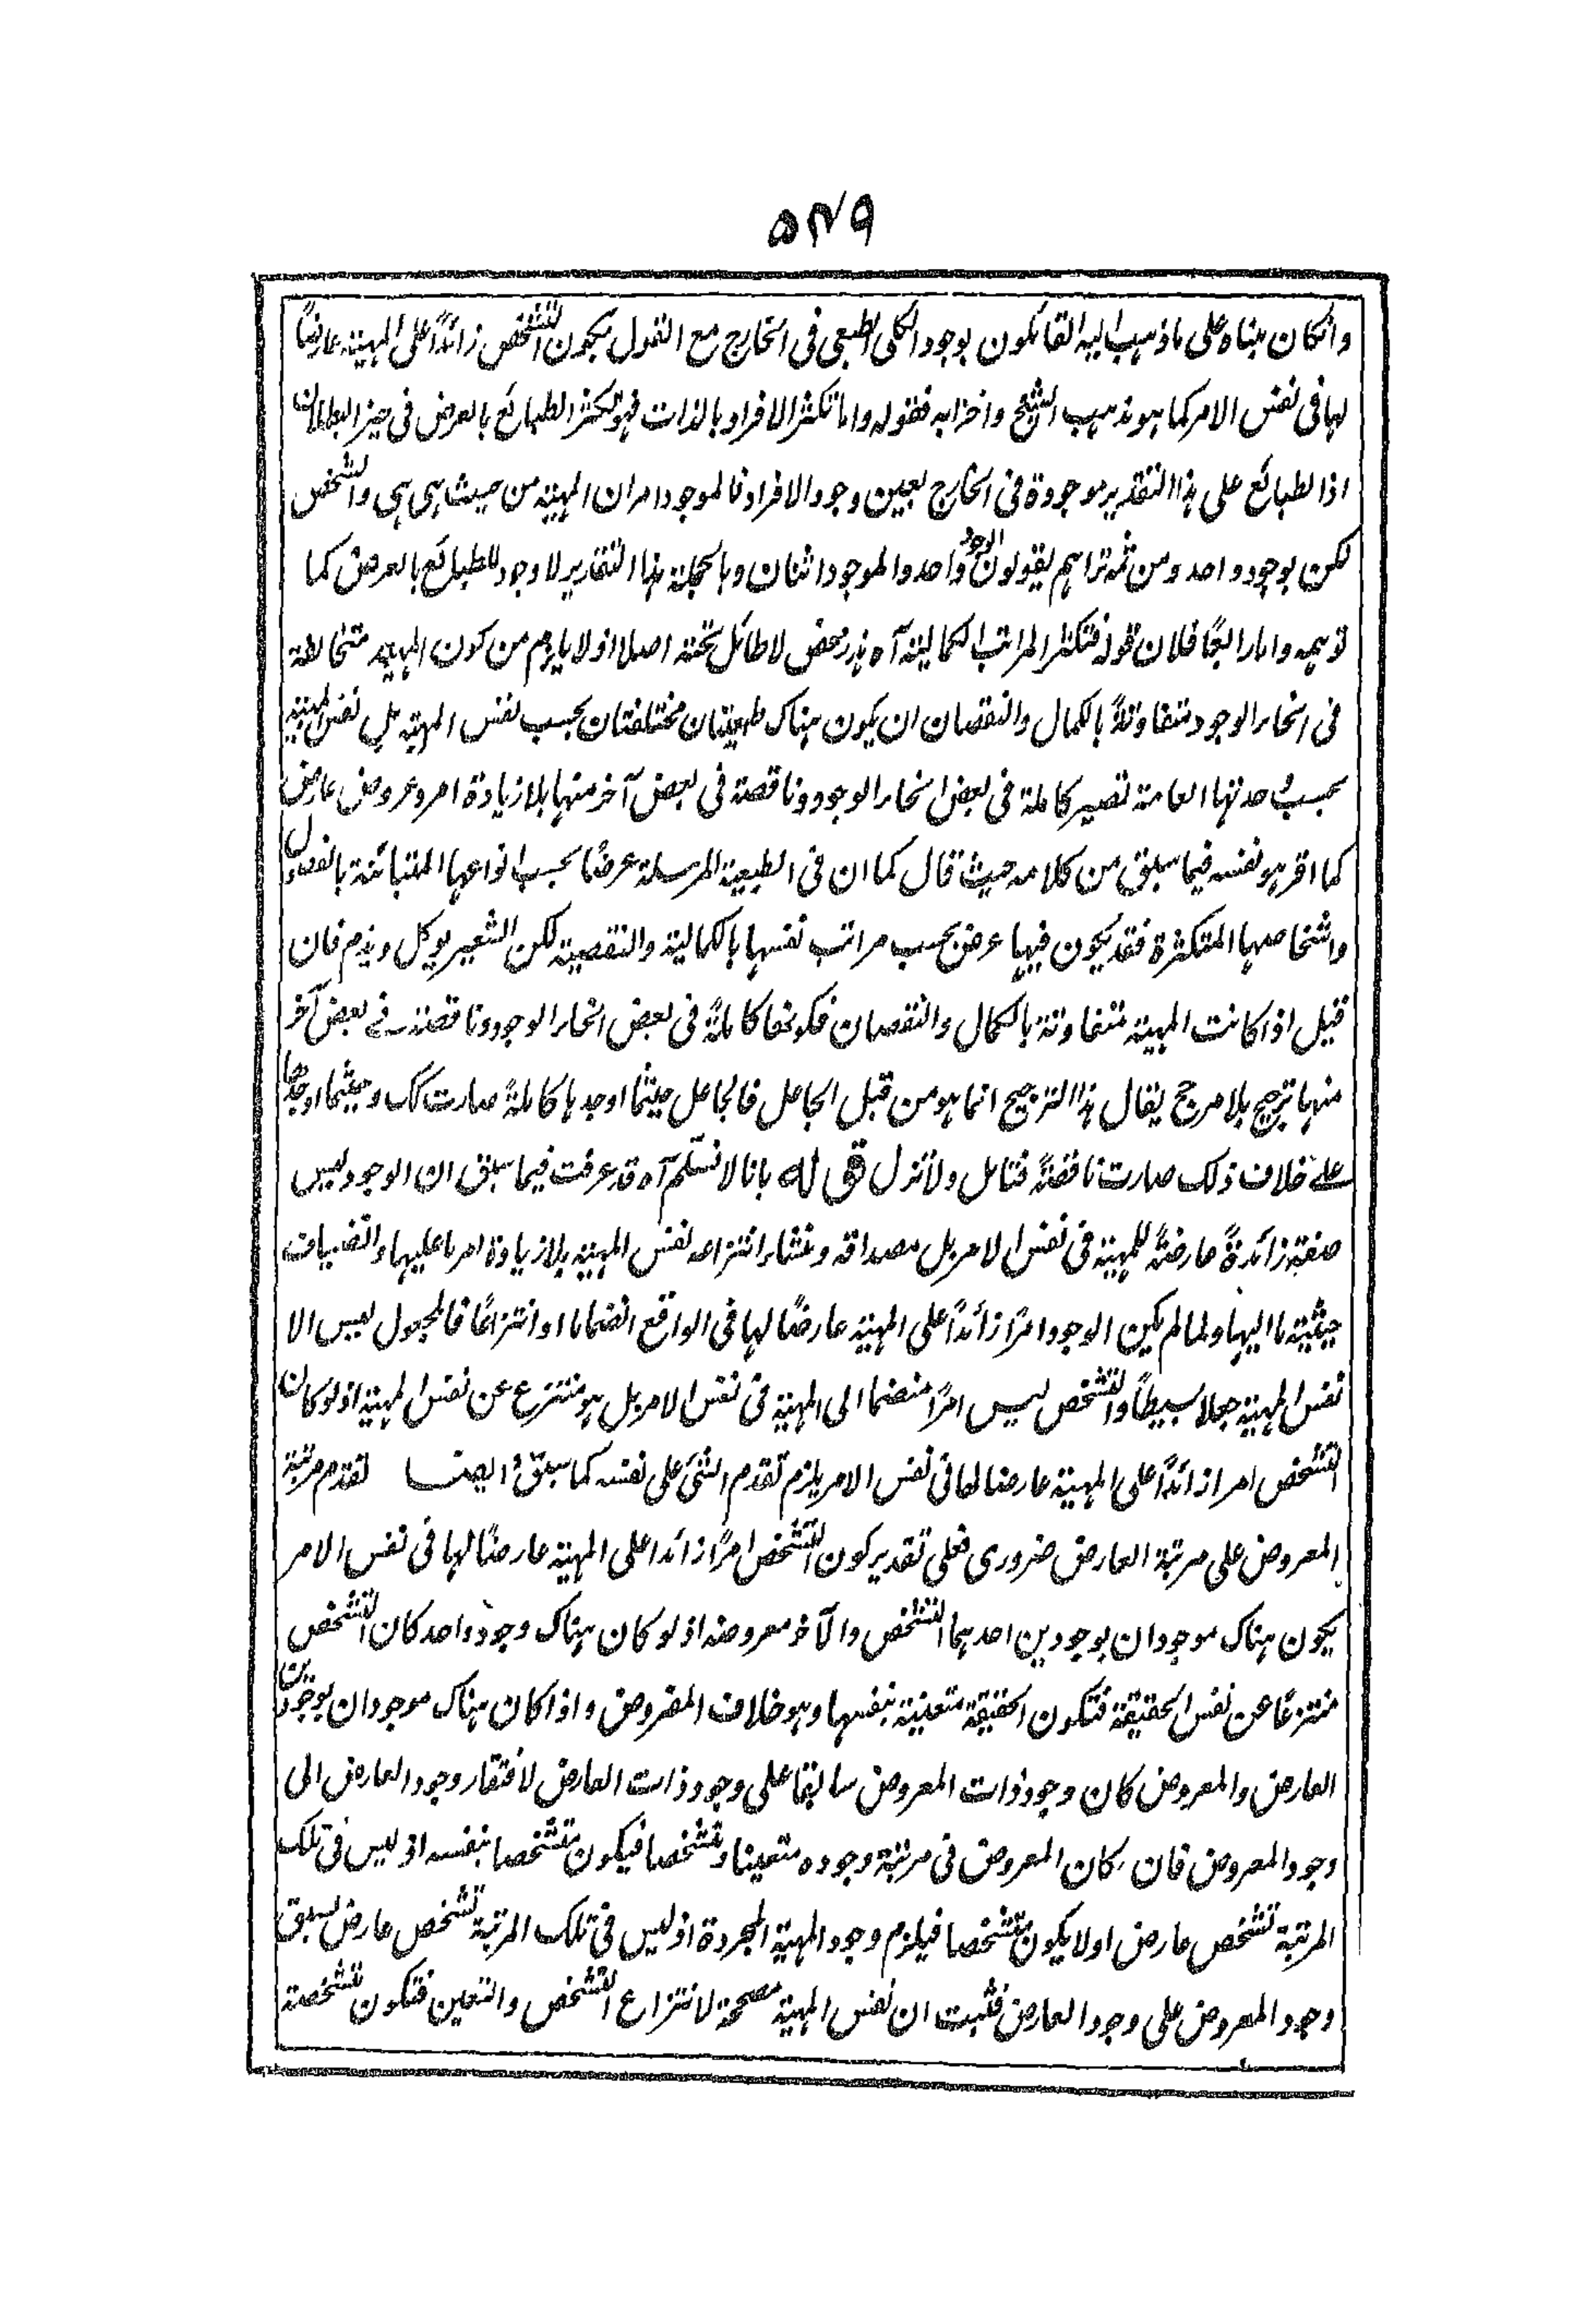 ٥٣٩
وانكان مبناه على ماذهب اليه القائلون بوجود الكلى الطبعى فى الخارج مع القول بكون التشخص زائداً على المهية عارضاً
لها فى نفس الامر كما هو مذهب الشيخ واحزابه فقوله واما تكثر الافراد بالذات فهو تكثر الطبائع بالعرض فى حيز البطلان
اذ الطبائع على هذا التقدير موجودة فى الخارج بعين وجود الافراد فالموجود امران المهية من حيث هى هى والتشخص
لكن بوجود واحد ومن ثمه تراهم يقولون الوجود واحد والموجود اثنان وبالجملة هذا التقدير لا وجود للطبائع بالعرض كما
توهمه واما رابعًا فلان قوله فتكثر المراتب الكمالية آه هذر محض لا طائل تحته اصلا اذ لا يلزم من كون المهية متخالطة
فى انحاء الوجود متفاوتةً بالكمال والنقصان ان يكون هناك طبيعتان مختلفتان بحسب نفس المهية بل نفس المهية
بحسب وحدتها العامة تصير كاملة فى بعض انحاء الوجود وناقصة فى بعض آخر منها بلا زيادة امر وعروض عارض
كما اقر هو نفسه فيما سبق من كلامه حيث قال كما ان فى الطبيعة المرسلة عرضًا بحسب انواعها المتبائنة بالفصول
واشخاصها المتكثرة فقد يكون فيها عرض بحسب مراتب نفسها بالكمالية والنقصية لكن الشعير يوكل ويذم فان
قيل اذا كانت المهية متفاوتة بالكمال والنقصان فكونها كاملةً فى بعض انحاء الوجود وناقصة فى بعض آخر
منها ترجيح بلا مرجح يقال هذا الترجيح انما هو من قبل الجاعل فالجاعل حيثما اوجدها كاملةً صارت كك وحيثما اوجدها
على خلاف ذلك صارت ناقصةً فتامل ولا تزل قوله بانا لا نسلم آه قد عرفت فيما سبق ان الوجود ليس
صفة زائدةً عارضةً للمهية فى نفس الامر بل مصداقه ومنشاء انتزاعه نفس المهية بلا زيادة امر ما عليها وانضياف
حيثية ما اليها ولما لم يكن الوجود امرًا زائداً على المهية عارضًا لها فى الواقع انضماما او انتزاعًا فالمجعول ليس الا
نفس المهية جعلا بسيطاً والتشخص ليس امرًا منضما الى المهية فى نفس الامر بل هو منتزع عن نفس المهية اذ لو كان
التشخص امرا زائدًا على المهية عارضا لها فى نفس الامر يلزم تقدم الشئ على نفسه كما سبق وايضا تقدم مرتبة
المعروض على مرتبة العارض ضرورى فعلى تقدير كون التشخص امرًا زائدا على المهية عارضًا لها فى نفس الامر
يكون هناك موجودان بوجودين احدهما التشخص والآخر معروضه اذ لو كان هناك وجود واحد كان التشخص
منتزعًا عن نفس الحقيقة فتكون الحقيقة متعينة بنفسها وهو خلاف المفروض واذا كان هناك موجودان بوجودين
العارض والمعروض كان وجود ذات المعروض سابقا على وجود ذات العارض لافتقار وجود العارض الى
وجود المعروض فان كان المعروض فى مرتبة وجوده متعينا ومتشخصا فيكون متشخصا بنفسه اذ ليس فى تلك
المرتبة تشخص عارض او لا يكون متشخصا فيلزم وجود المهية المجردة اذ ليس فى تلك المرتبة تشخص عارض لسبق
وجود المعروض على وجود العارض فثبت ان نفس المهية مصححة لانتزاع التشخص والتعين فتكون متشخصة